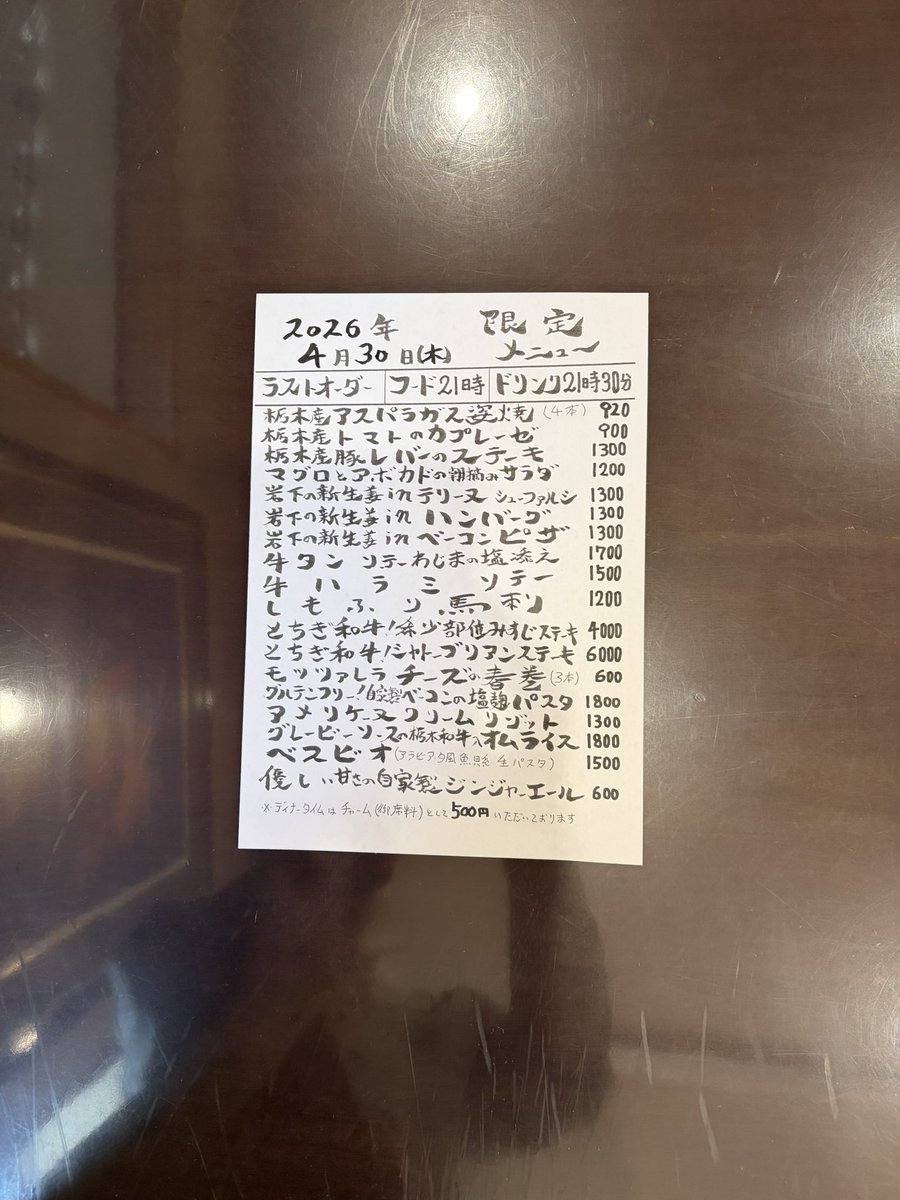 2026年 限定
4月30日(木) メニュー
ラストオーダー フード21時 ドリンク21時30分
栃木産アスパラガス姿焼(4本) 920
栃木産トマトのカプレーゼ 900
栃木産豚レバーのステーキ 1300
マグロとアボカドの朝摘みサラダ 1200
岩下の新生姜inテリーヌ シューファルシ 1300
岩下の新生姜in ハンバーグ 1300
岩下の新生姜in ベーコンピザ 1300
牛タンソテーわじまの塩添え 1700
牛ハラミソテー 1500
しもふり馬刺 1200
とちぎ和牛!希少部位みすじステーキ 4000
とちぎ和牛!シャトーブリアンステーキ 6000
モッツァレラチーズの春巻(3本) 600
グルテンフリー!自家製ベーコンの塩麹パスタ 1800
アメリケーヌクリームリゾット 1300
グレービーソースの栃木和牛入オムライス 1800
ベスビオ(アラビアータ風魚貝 生パスタ) 1500
優しい甘さの自家製ジンジャーエール 600
※ディナータイムはチャーム(御席料)として500円いただいております